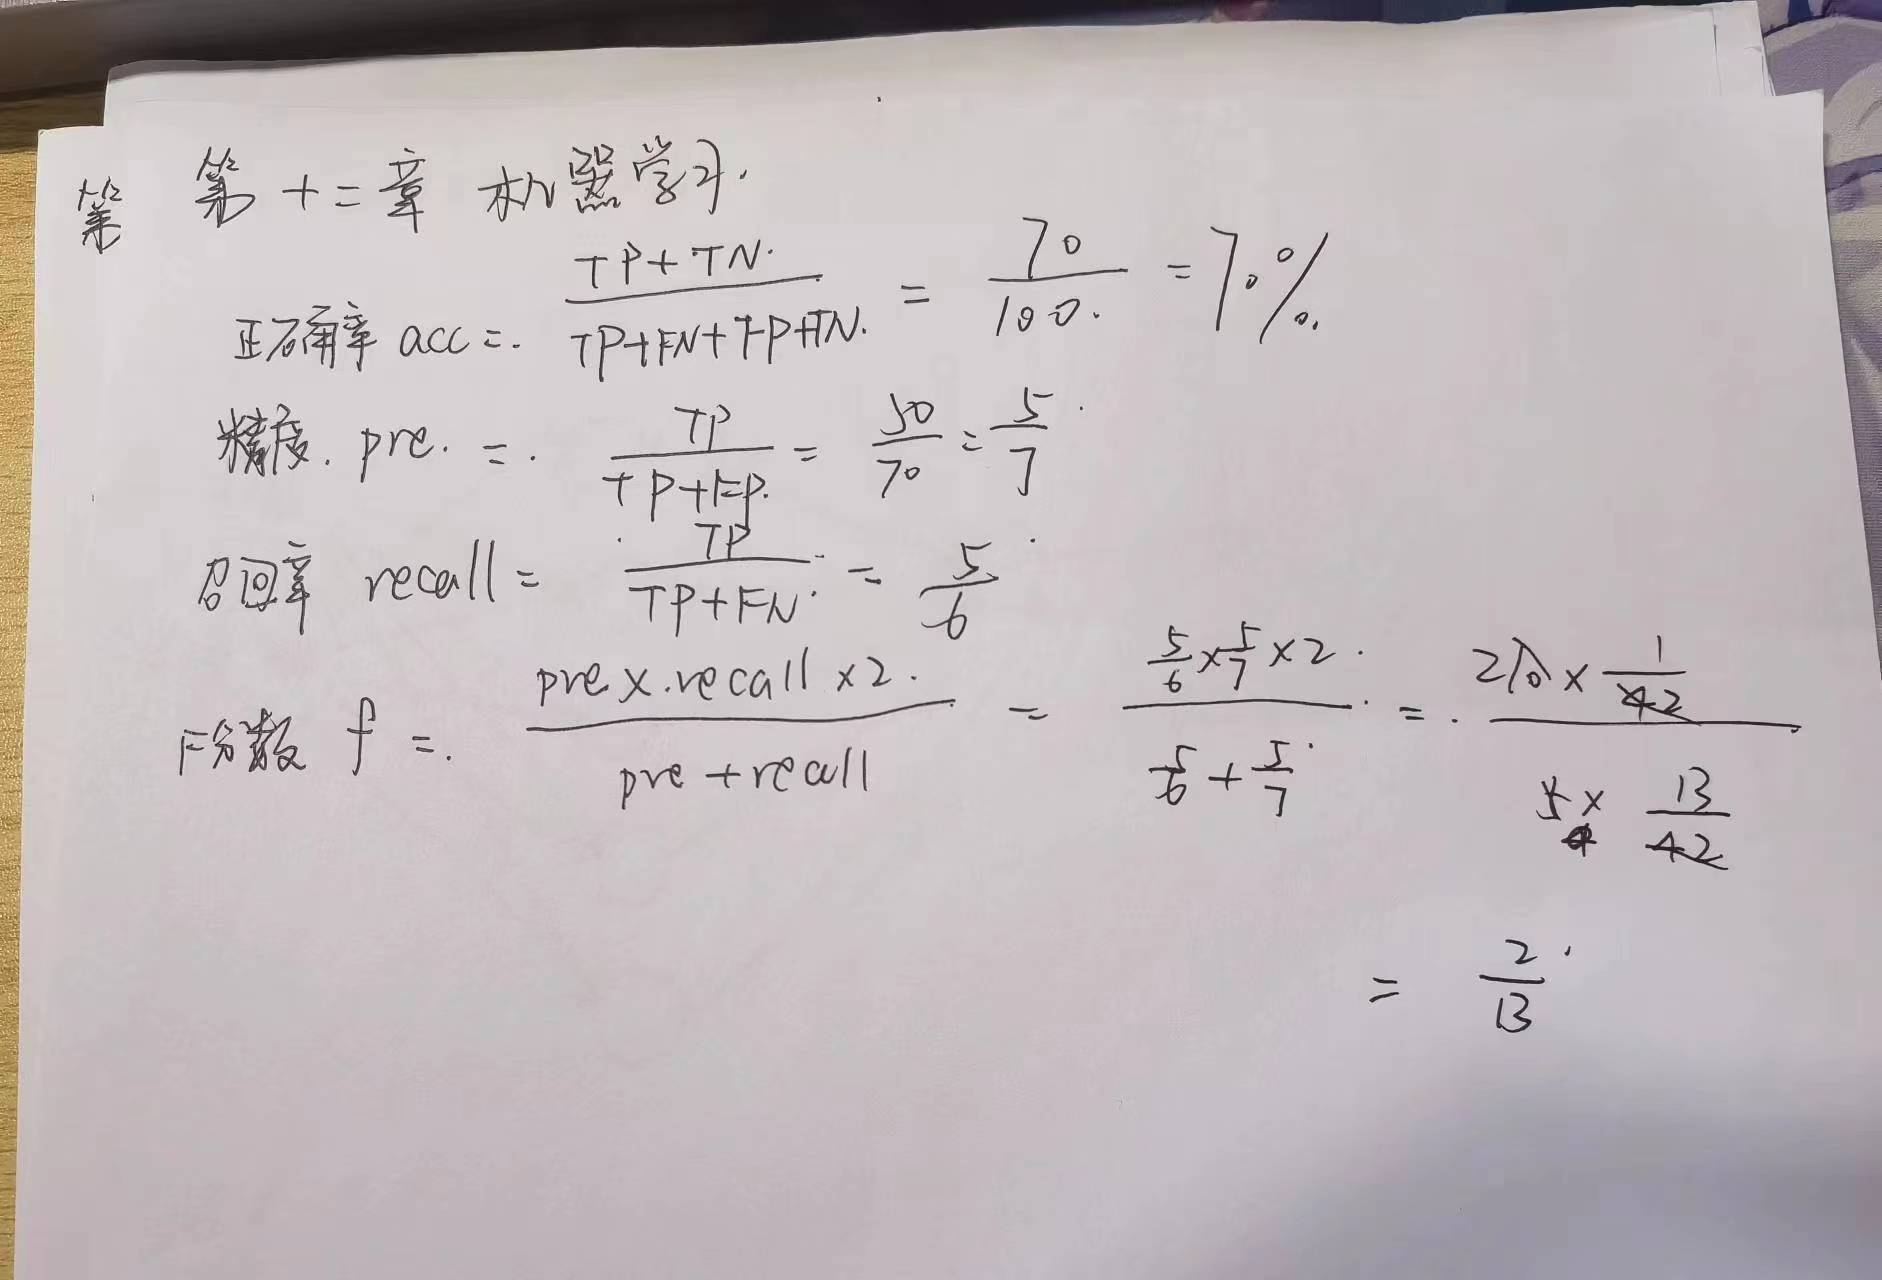 第 第十二章 机器学习.
正确率 acc = TP+TN / TP+FN+FP+TN. = 70 / 100. = 70%.
精度. pre. = TP / TP+FP. = 50 / 70 = 5 / 7
召回率 recall = TP / TP+FN = 5 / 6
F分数 f = pre x recall x2. / pre + recall = 5/6 x 5/7 x 2 / 5/6 + 5/7 = x 1/42 / 5 x 13/42
= 2 / 13